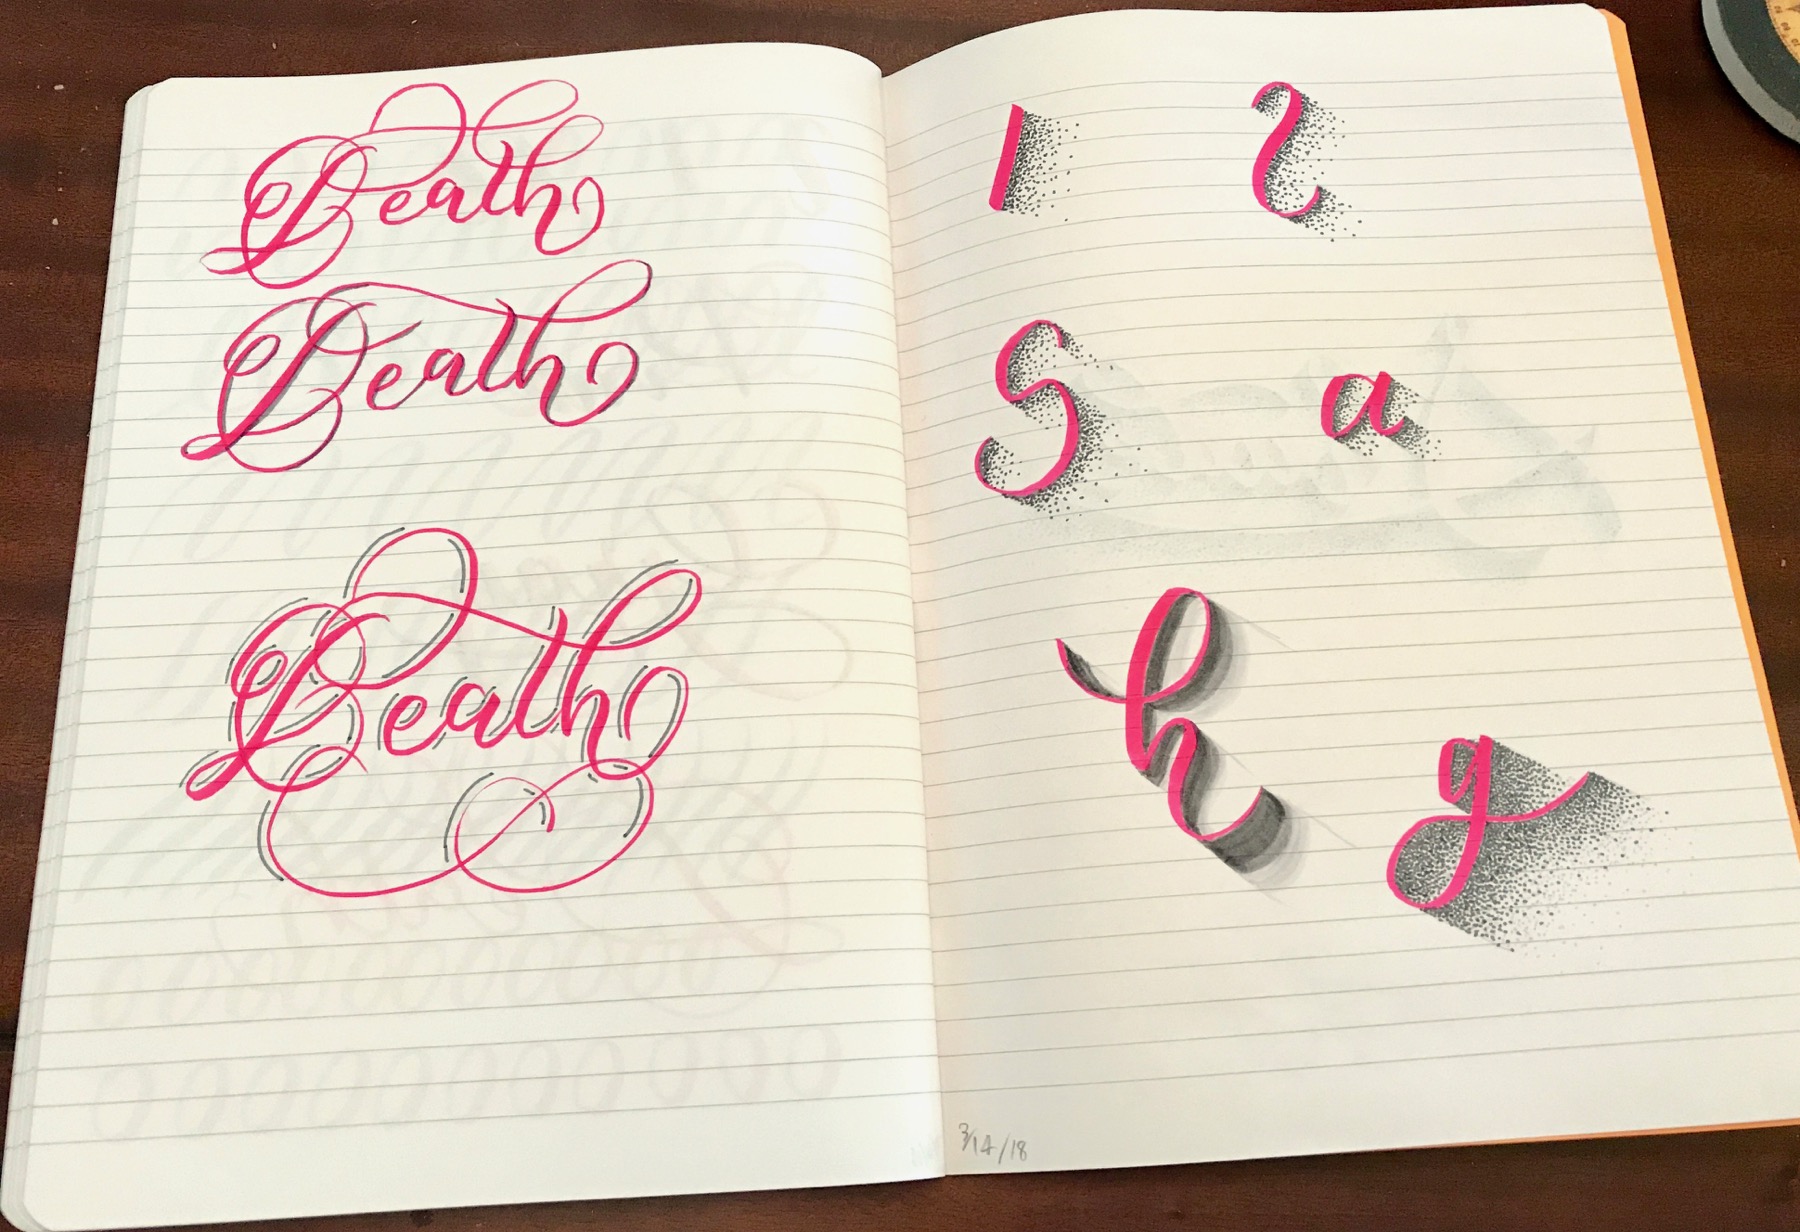 Death
Death
Death
l
S
a
h
g
3/14/18